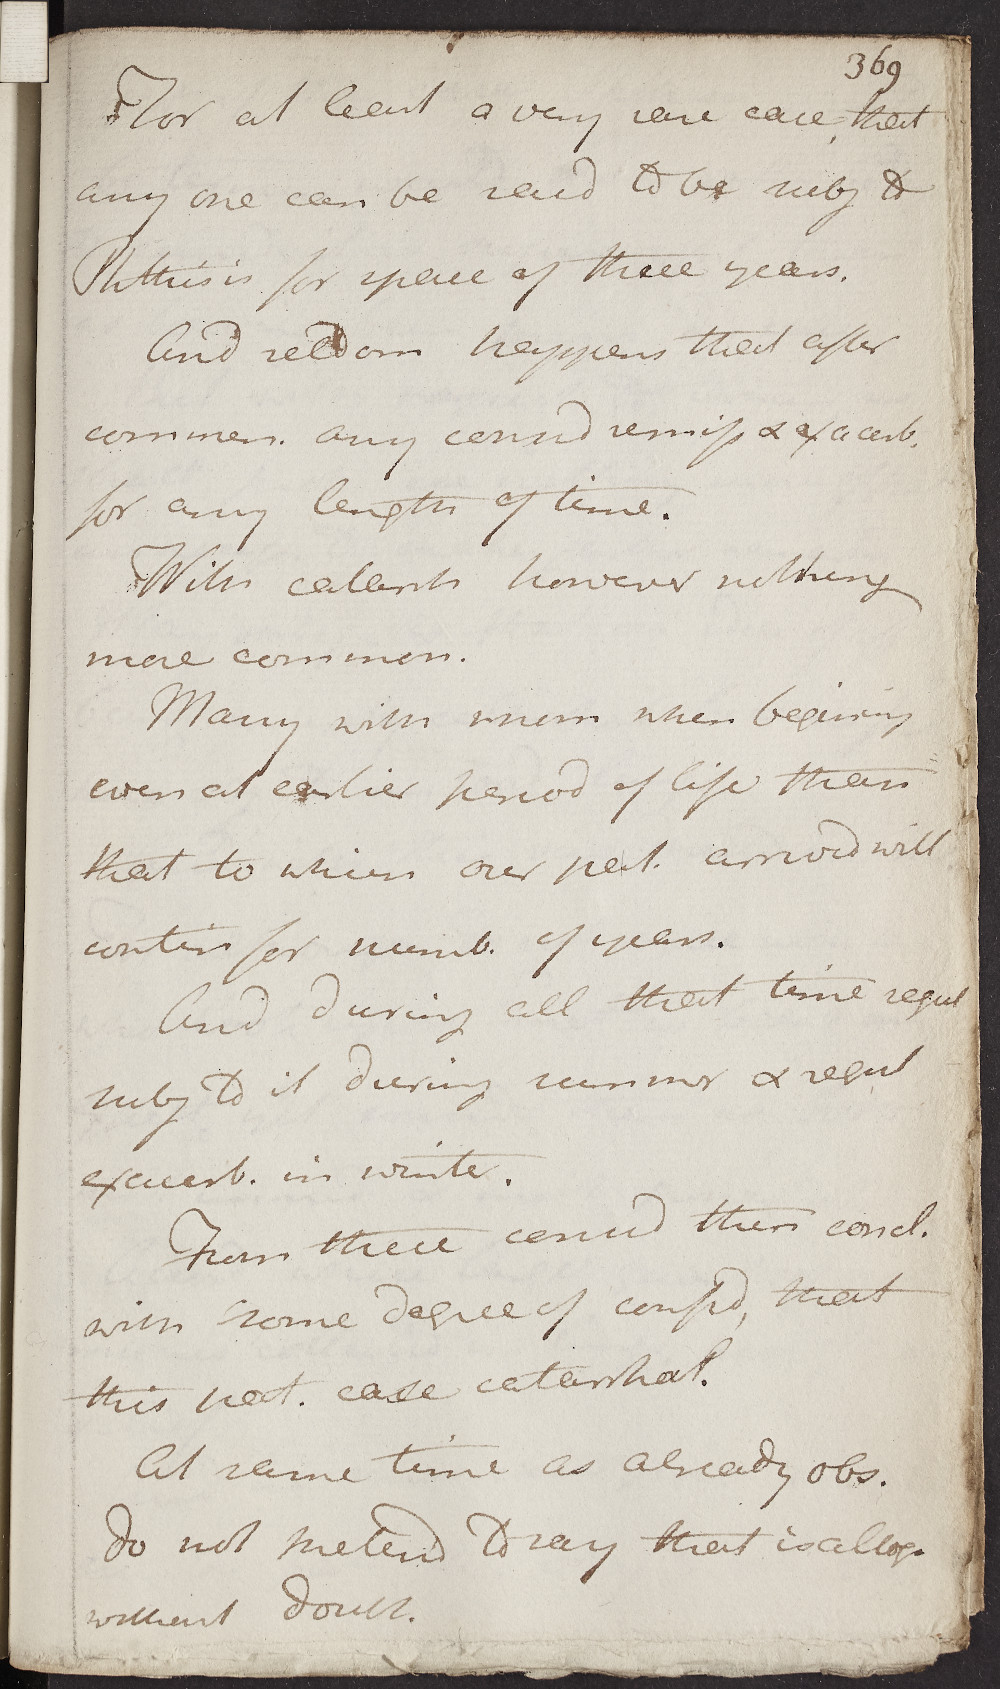 369
For at least a very rare case, that
any one can be said to be subj to
Phthisis for space of three years.
And seldom happens that after
commen. any consid remiss & exacerb.
for any length of time.
With catarrh however nothing
more common.
Many with whom when begining
even at earlier period of life than
that to which our pat. arrived will
contin for numb. of years.
And during all that time regul
subj to it during summer & regul
exacerb. in winter.
From these consid then concl.
with some degree of confid, that
this pat. case catarrhal.
At same time as already obs.
do not pretend to say that is altog.
without doubt.